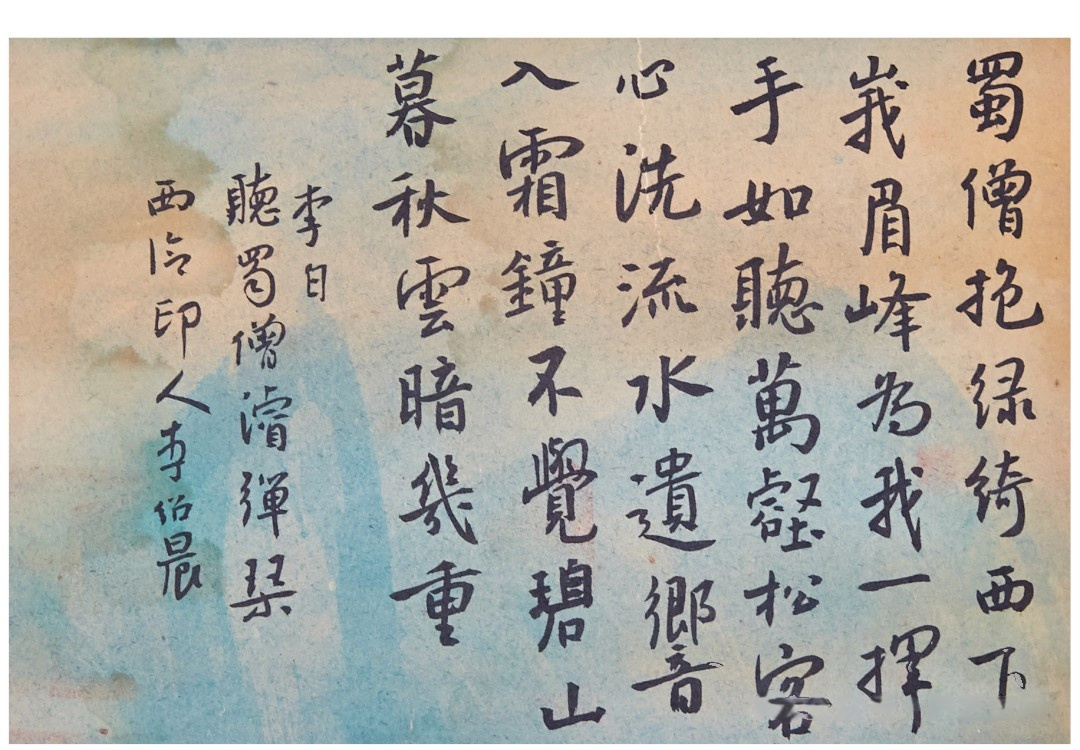 蜀僧抱绿绮西下
峩眉峰為我一揮
手如聽萬壑松客
心洗流水遺響
入霜鐘不覺碧山
暮秋雲暗幾重
李白
聽蜀僧濬彈琴
西泠印人李晨